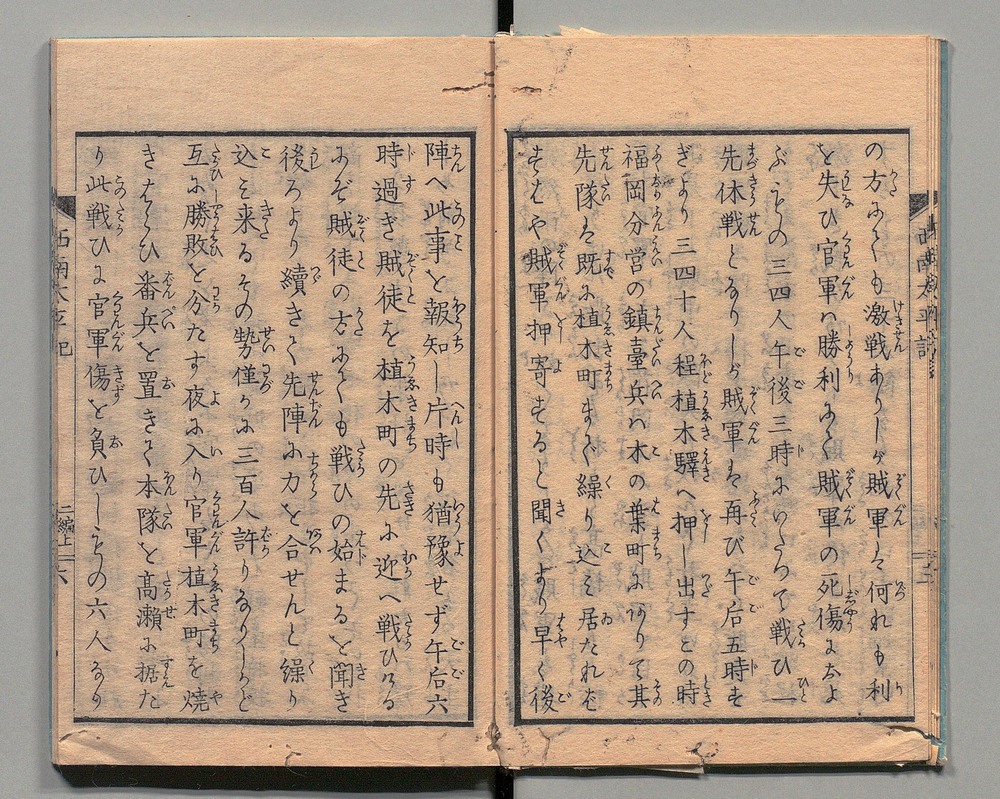 の方にても激戦ありしが賊軍は何れも利
を失ひ官軍ハ勝利にて賊軍の死傷におよ
ぶもの三四人午後三時にいたつて戦ひ一
先休戦となりしが賊軍は再び午后五時す
ぎより三四十人程植木驛へ押し出すとの時
福岡分営の鎮臺兵ハ木の葉町にありて其
先隊は既に植木町まで繰り込み居たれば
すはや賊軍押寄するよと聞くより早く後
陣へ此事を報知し片時も猶豫せず午后六
時過ぎ賊徒を植木町の先に迎へ戦ひける
にぞ賊徒の方にても戦ひの始まるを聞き
後ろより續きて先陣に力を合せんと繰り
込み来るその勢僅かに三百人許りなりしかど
互に勝敗を分たす夜に入り官軍植木町を焼
きはらひ番兵を置きて本隊を高瀬に据た
り此戦ひに官軍傷を負ひしもの六人なり
西南太平記
二編上
六